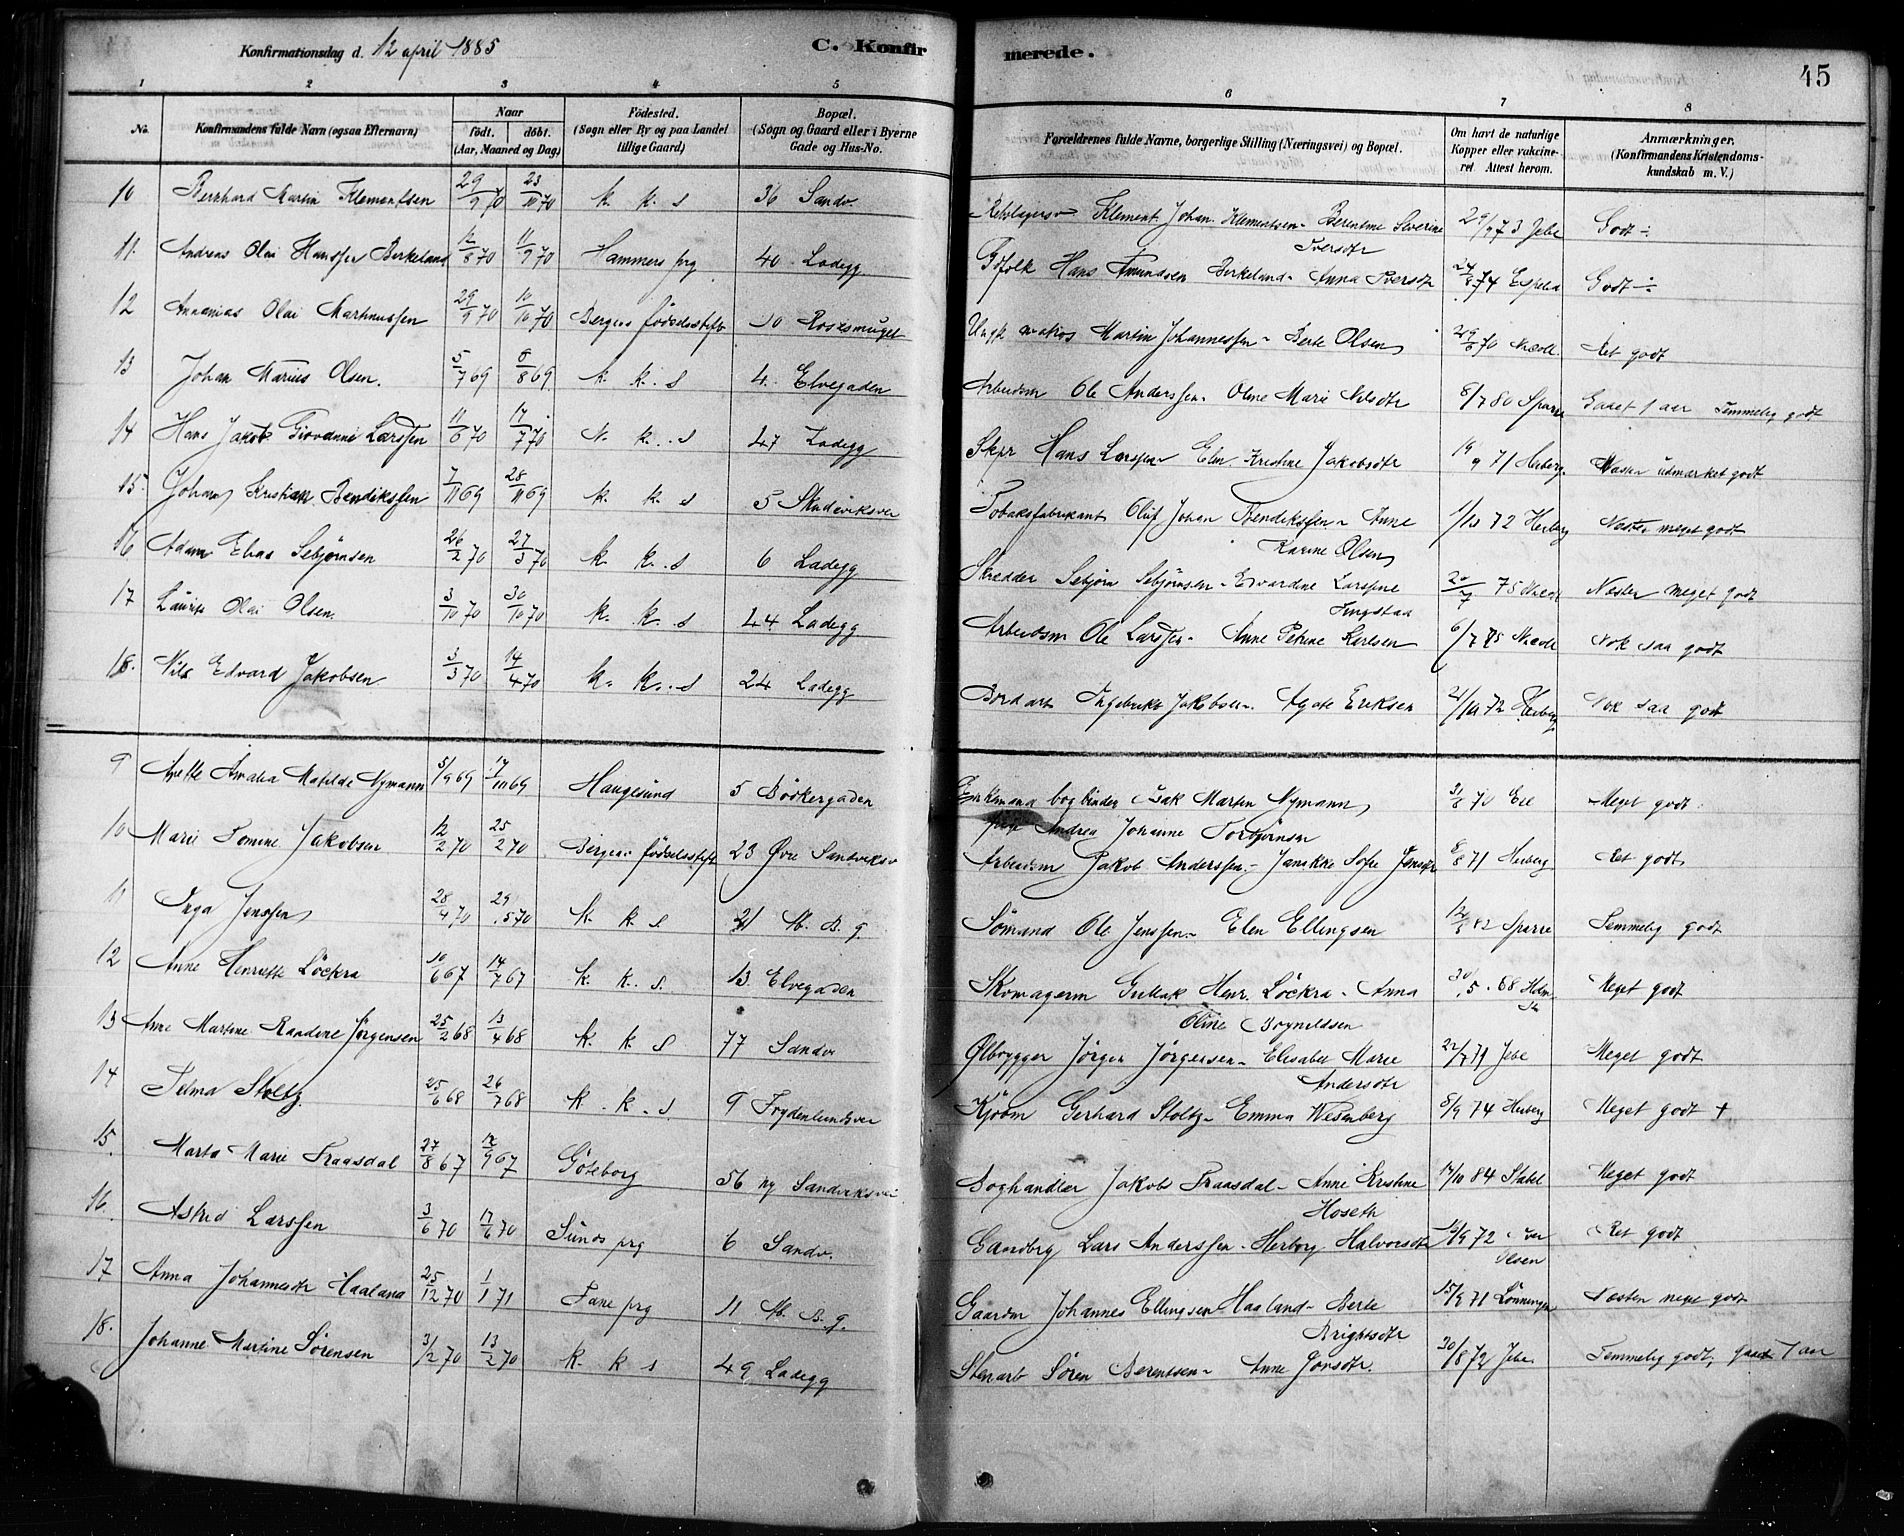 Konfirmationsdag d. 12 april 1885
C. Konfir
merede.
45
1 2 3 4 5 6 7 8
No.
Konfirmandens fulde Navn (ogsaa Efternavn)
Naar
født. døbt.
(Aar, Maaned og Dag)
Födested.
(Sogn eller By og paa Landet
tillige Gaard)
Bopæl.
(Sogn og Gaard eller i Byerne
Gade og Hus-No.
Forældrenes fulde Navne, borgerlige Stilling (Næringsvei) og Bopæl.
Om havt de naturlige
Kopper eller vakcine-
ret Attest herom.
Anmærkninger.
(Konfirmandens Kristendoms-
kundskab m. V.)
10 Bernhard Martin Klementsen 29/9 70 23/10 70 k. k. s 36 Sandv. Klement Johan Klementsen - Berentine Severine 29/7 73 Jebe Godt ÷
Iversdtr
11. Andreas Olai Hanssen Birkeland 12/8 70 11/9 70 Hammers prg 40 Ladegg Hans Amundsen Birkeland - Anna Iversdtr 24/8 74 Godt ÷
12 Annanias Olai Martinussen 29/9 70 10/10 70 Bergens födselsstift 10 Rosesmuget Ungk Martin Johannessen - Berte Olsen 29/6 70 Ret godt
13 Johan Marius Olsen. 5/7 69 8/8 69 k. k. s 4. Elvegaden Arbeidsm Ole Anderssen. Oline Marie Nilsdtr 8/7 80 Sparre Gaaet 1 aar Temmelig godt
14 Hans Jakob Giovanni Larssen 11/6 70 17/7 70 k. k. s 47 Ladegg Skpr Hans Larssen - Elen Kristine Jakobsdtr 19/9 71 Herberg. Næsten udmærket godt
15. Johan Kristian Bendikssen 7/11 69 28/11 69 k. k. s 5 Skudeviksvei Tobaksfabrikant Oluf Johan Bendikssen - Anne 1/10 72 Herberg Næsten meget godt
Karine Olsen
16 Adam Elias Sebjørnsen 26/2 70 27/3 70 k. k. s 6 Ladegg Skrædder Sebjørn Sebjørnsen - Edvardine Larsine 20/7 75 Næsten meget godt
17 Laurits Olai Olsen. 3/10 70 30/10 70 k. k. s 44 Ladegg Arbeidsm Ole Larssen - Anne Petrine Karlsen 6/7 75 Nok saa godt
18. Nils Edvard Jakobsen 3/3 70 14/4 70 k. k. s 24 Ladegg Ingebrikt Jakobsen. Agate Eriksen 21/10 72 Herberg Nok saa godt
9 Anette Amalia Matilde Nymann 5/9 69 17/10 69 Haugesund 5 Bödkergaden bogbinder Isak Martin Nymann 31/5 70 Meget godt
Andrea Johanne Torbjørnsen
10 Marie Tomine Jakobsen 12/2 70 25/2 70 Bergens födselsstift 23 Øvre Sandviksv Arbeidsm Jakob Anderssen. Jannikke Sofie Jensdtr 8/8 71 Herberg Ret godt
11 Inga Jenssen 28/4 70 29/5 70 k. k. s 21 M. B. g. Sömand Ole Jenssen - Elen Ellingsen 12/5 82 Sparre Temmelig godt
12 Anne Henriette Löckra 10/6 67 14/7 67 k. k. s. 13 Elvegaden Skomagerm Gullak Henr. Löckra - Anna 30/5 68 Meget godt
Oline Brynildsen
13 Anne Martine Randine Jørgensen 25/2 68 13/4 68 k. k. s 77 Sandv Ølbrygger Jörgen Jörgensen - Elisabet Marie 22/7 79 Jebe Meget godt
Andersdtr
14 Selma Stoltz 25/6 68 26/7 68 k. k. s 9 Frydenlundsvei Kjöbm Gerhard Stoltz - Emma Wesenberg 8/9 74 Herberg Meget godt +
15. Marta Marie Fraasdal 27/8 67 12/9 67 Göteborg 56 ny Sandviksvei Boghandler Jakob Fraasdal - Anne Kristine 17/10 84 Stabel Meget godt
Hoseth
16. Astrid Larssen 3/6 70 17/6 70 Sunds prg 6 Sandv. Lars Anderssen - Herborg Halvorsdtr 12/9 72 Iver Ret godt
Olsen
17 Anna Johannesdtr Haaland 25/12 70 1/1 71 Fane prg 11 M. B. g. Gaardm Johannes Ellingsen Haaland - Berte 15/9 71 Lönningen Næsten meget godt
Brightsdtr
18. Johanne Martine Sörensen 3/2 70 13/2 70 k. k. s 49 Ladegg Stenarb Sören Berentsen - Anne Jonsdtr. 30/8 72 Jebe. Temmelig godt, gaaet 1 aar